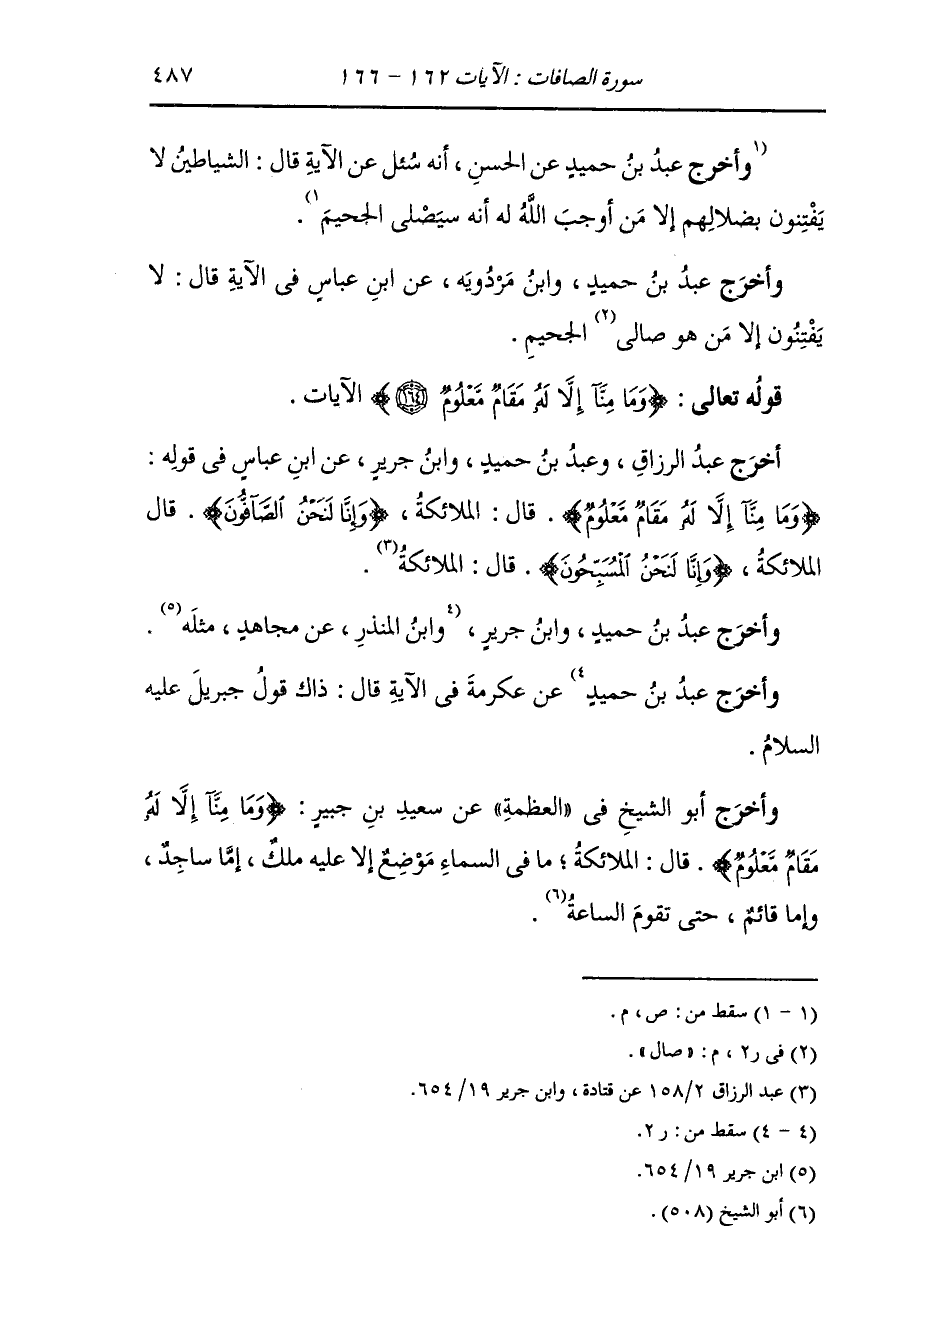 سورة الصافات : الآيات ١٦٢ - ١٦٦ ٤٨٧
(١وأخرج عبدُ بنُ حميدٍ عن الحسنِ ، أنه سُئل عن الآيةِ قال : الشياطينُ لا
يَفْتِنون بضلالِهم إلا مَن أوجبَ اللَّهُ له أنه سيَصْلى الجحيمَ١) .
وأخرَج عبدُ بنُ حميدٍ ، وابنُ مَرْدُويَه ، عن ابنِ عباسٍ فى الآيةِ قال : لا
يَفْتِنُون إلا مَن هو صالى(٢) الجحيمِ .
قولُه تعالى : ﴿وَمَا مِنَّآ إِلَّا لَهُۥ مَقَامٌ مَّعْلُومٌ ١٦٤﴾ الآيات .
أخرَج عبدُ الرزاقِ ، وعبدُ بنُ حميدٍ ، وابنُ جريرٍ ، عن ابنِ عباسٍ فى قولِه :
﴿وَمَا مِنَّآ إِلَّا لَهُۥ مَقَامٌ مَّعْلُومٌ﴾ . قال : الملائكةُ ، ﴿وَإِنَّا لَنَحْنُ ٱلصَّآفُّونَ﴾ . قال
الملائكةُ ، ﴿وَإِنَّا لَنَحْنُ ٱلْمُسَبِّحُونَ﴾ . قال : الملائكةُ(٣) .
وأخرَج عبدُ بنُ حميدٍ ، وابنُ جريرٍ ، (٤وابنُ المنذرِ ، عن مجاهدٍ ، مثلَه(٥) .
وأخرَج عبدُ بنُ حميدٍ٤) عن عكرمةَ فى الآيةِ قال : ذاك قولُ جبريلَ عليه
السلامُ .
وأخرَج أبو الشيخِ فى «العظمةِ» عن سعيدِ بنِ جبيرٍ : ﴿وَمَا مِنَّآ إِلَّا لَهُۥ
مَقَامٌ مَّعْلُومٌ﴾ . قال : الملائكةُ ؛ ما فى السماءِ مَوْضِعٌ إلا عليه ملكٌ ، إمَّا ساجِدٌ ،
وإما قائمٌ ، حتى تقومَ الساعةُ(٦) .
(١ - ١) سقط من : ص ، م .
(٢) فى ر٢ ، م : «صال» .
(٣) عبد الرزاق ١٥٨/٢ عن قتادة ، وابن جرير ٦٥٤/١٩ .
(٤ - ٤) سقط من : ر ٢ .
(٥) ابن جرير ٦٥٤/١٩ .
(٦) أبو الشيخ (٥٠٨) .